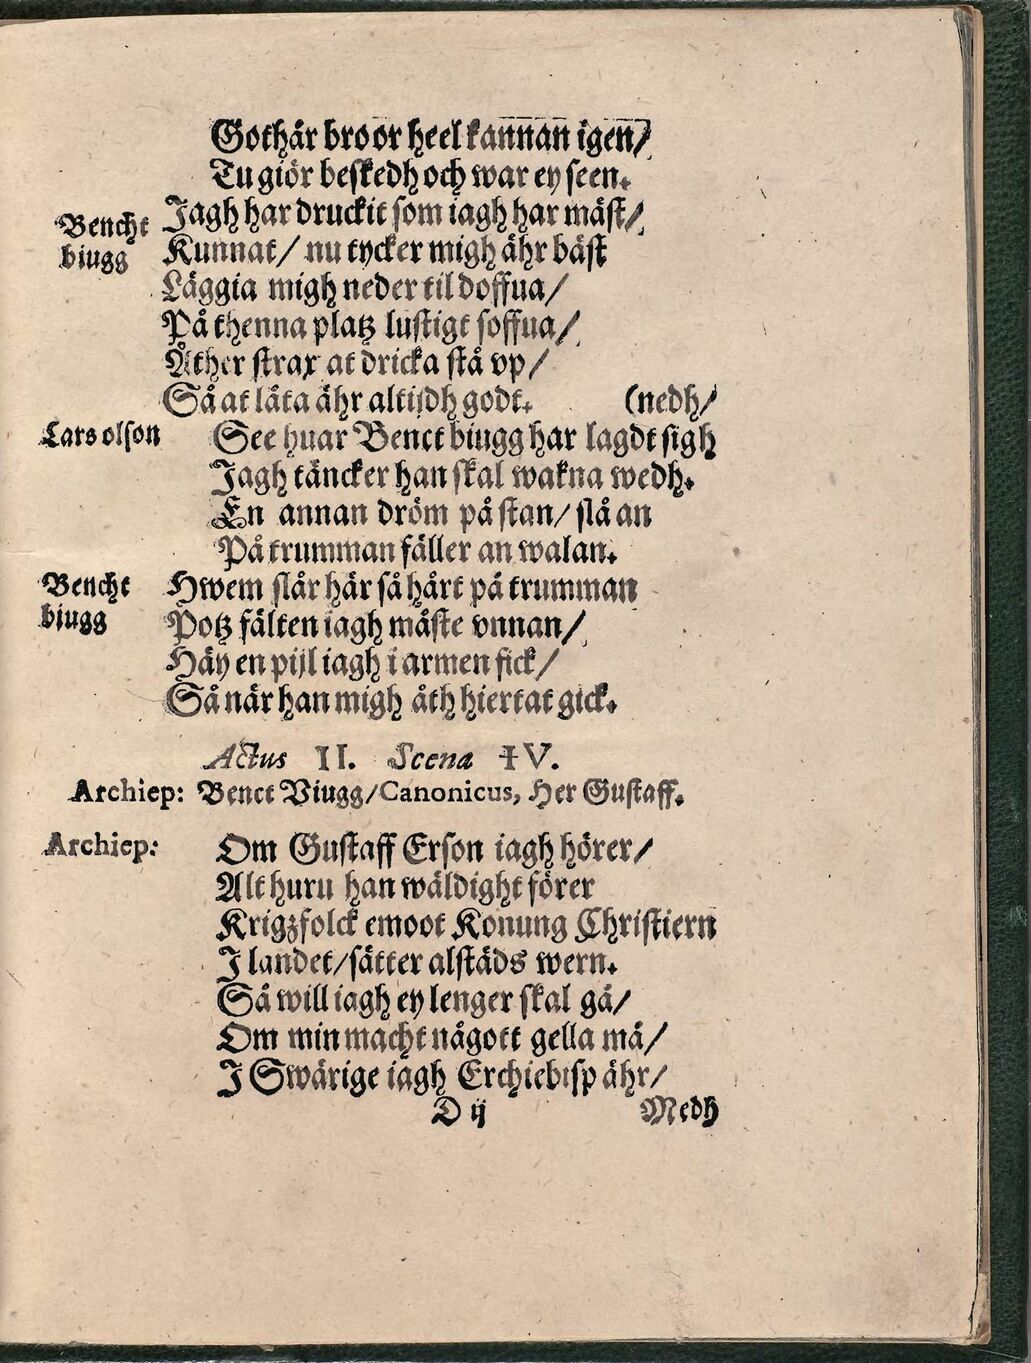 Gothär broor heel kannan igen/
Tu giör beskedh och war ey seen.
Bencht biugg Jagh har druckit som iagh har mäst/
Kunnat/ nu tycker migh ähr bäst
Läggia migh neder til doffua/
På thenna platz lustigt soffua/
Åther strax at dricka stå vp/
Så at låta ähr altijdh godt. (nedh/
Lars olson See huar Benct biugg har lagdt sigh
Jagh täncker han skal wakna wedh.
En annan dröm på stan/ slå an
På trumman fäller an walan.
Bencht biugg Hwem slår här så hårt på trumman
Potz fälten iagh måste vnnan/
Häy en pijl iagh i armen fick/
Så när han migh åth hiertat gick.
Actus II. Scena IV.
Archiep: Benct Biugg/ Canonicus, Her Gustaff.
Archiep: Om Gustaff Erson iagh hörer/
Alt huru han wäldight förer
Krigzfolck emoot Konung Christiern
J landet/ sätter alstäds wern.
Så will iagh ey lenger skal gå/
Om min macht någott gella må/
J Swärige iagh Erchiebisp ähr/
D ij Medh